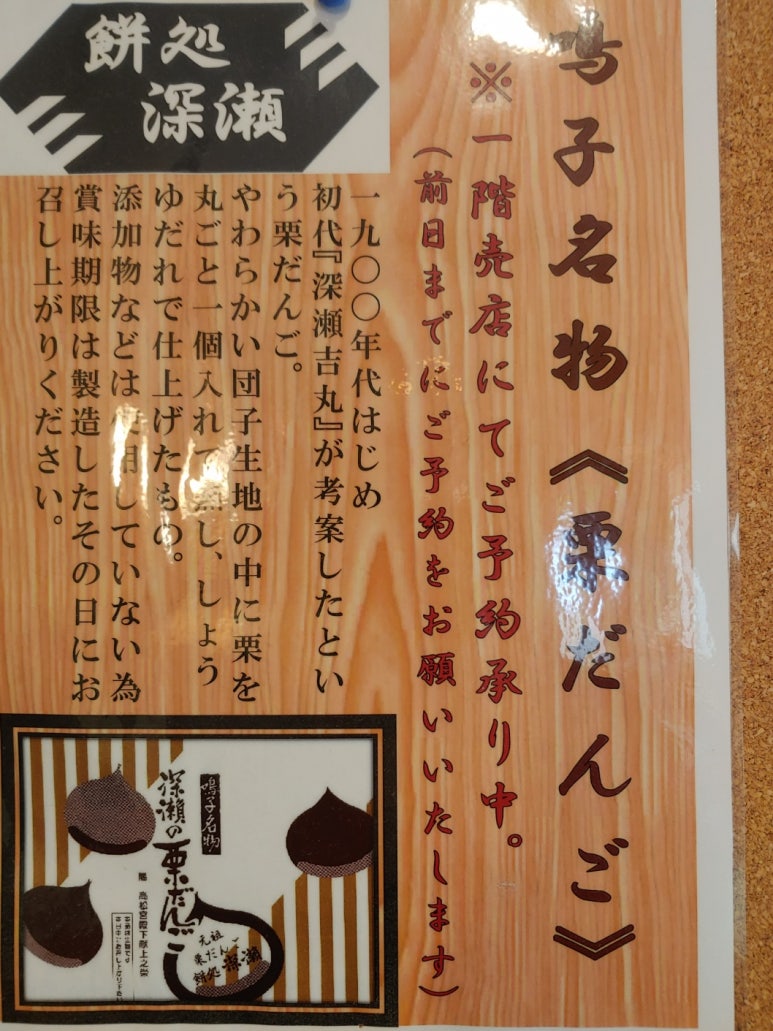 鳴子名物《栗だんご》
※一階売店にてご予約承り中。
(前日までにご予約をお願いいたします)
餅処
深瀬
一九〇〇年代はじめ
初代『深瀬吉丸』が考案したとい
う栗だんご。
やわらかい団子生地の中に栗を
丸ごと一個入れて蒸し、しょう
ゆだれで仕上げたもの。
添加物などは使用していない為
賞味期限は製造したその日にお
召し上がりください。
鳴子名物
深瀬の栗だんご
高松宮殿下献上之栄
元祖
栗だんご
餅処 深瀬